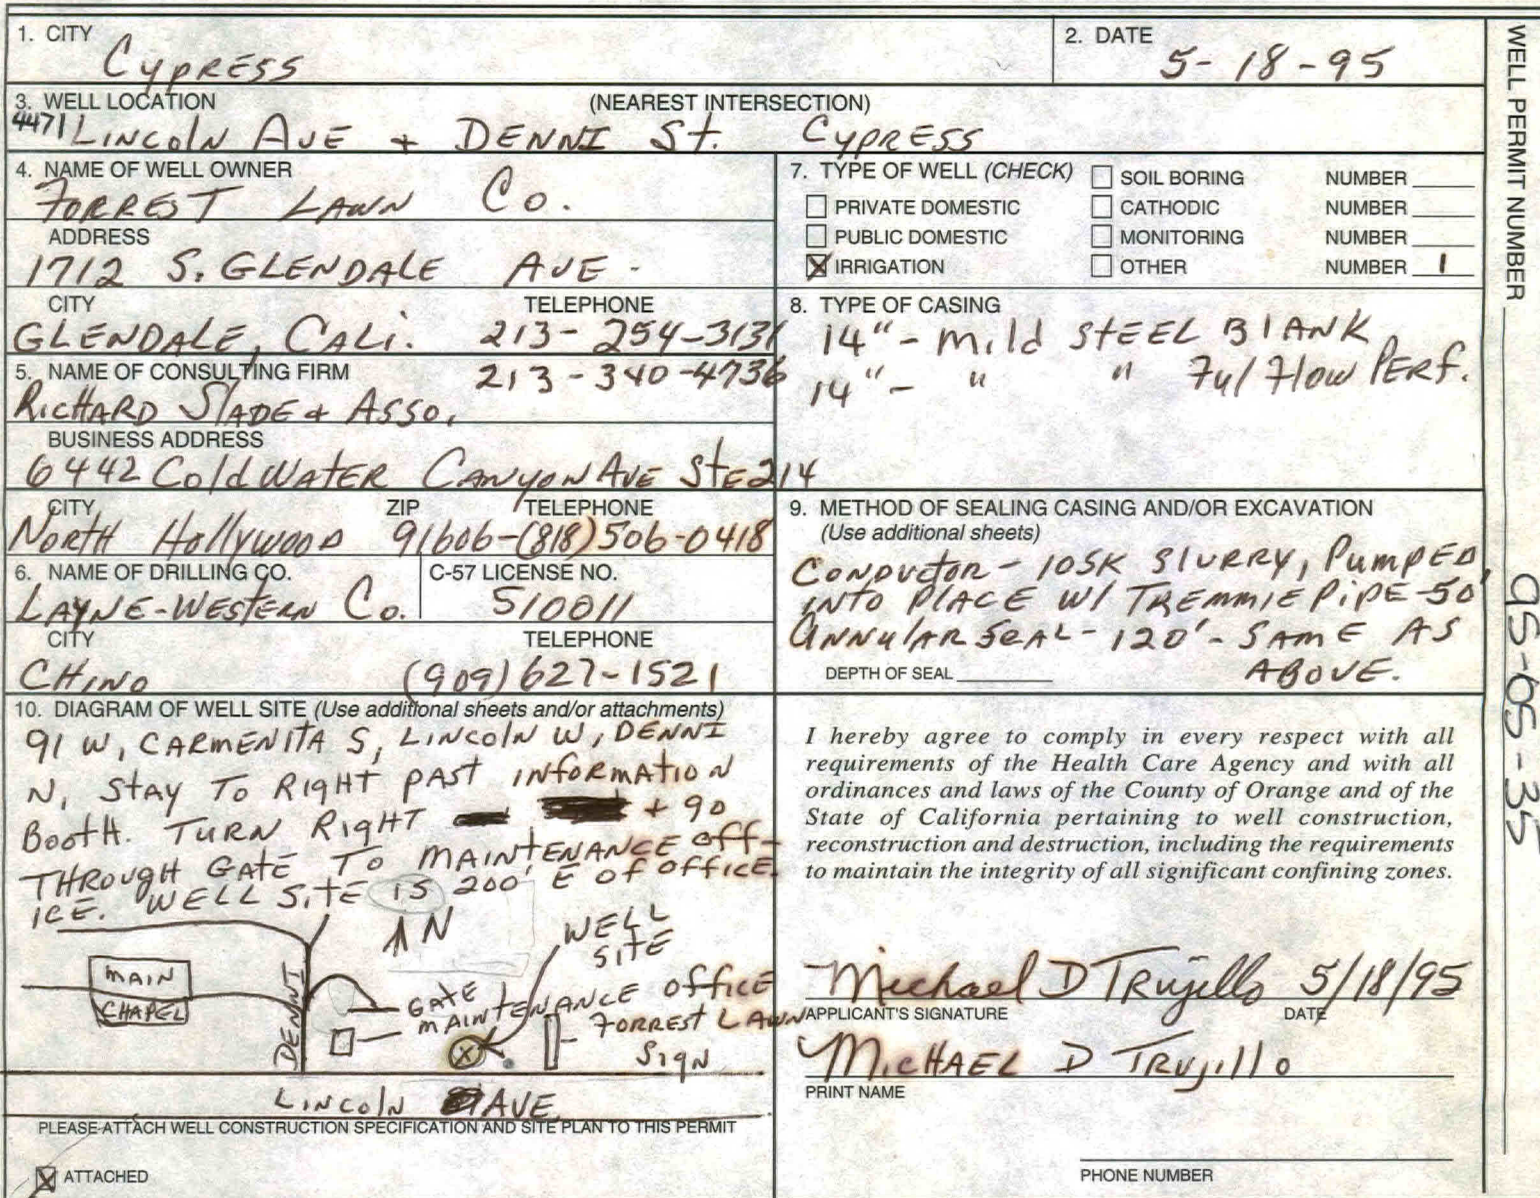 1. CITY
Cypress
2. DATE
5-18-95
3. WELL LOCATION (NEAREST INTERSECTION)
4471 Lincoln Ave + DENNI St. Cypress
4. NAME OF WELL OWNER
FORREST LAWN Co.
ADDRESS
1712 S. GLENDALE AVE -
CITY TELEPHONE
GLENDALE, CALi. 213-254-3131
213-340-4736
5. NAME OF CONSULTING FIRM
RicHARD SlADE + Asso.
BUSINESS ADDRESS
6442 ColdWATER CANYON AVE StE 214
CITY ZIP TELEPHONE
North Hollywood 91606-(818)506-0418
6. NAME OF DRILLING CO. C-57 LICENSE NO.
LAYNE-WESTERN Co. 510011
CITY TELEPHONE
CHINO (909)627-1521
7. TYPE OF WELL (CHECK)
PRIVATE DOMESTIC
PUBLIC DOMESTIC
X IRRIGATION
SOIL BORING NUMBER
CATHODIC NUMBER
MONITORING NUMBER
OTHER NUMBER 1
8. TYPE OF CASING
14" - Mild STEEL BlANK
14" - " " Ful Flow PERF.
9. METHOD OF SEALING CASING AND/OR EXCAVATION
(Use additional sheets)
CONDUCTOR - 10SK SlURRY, PUMPED
INTO PLACE W/ TREMMIE PIPE-50'
ANNULAR SEAL - 120' - SAME AS
ABOVE.
DEPTH OF SEAL
10. DIAGRAM OF WELL SITE (Use additional sheets and/or attachments)
91 W, CARMENITA S, LINCOLN W, DENNI
N, STAY TO RIGHT PAST INFORMATION
BOOTH. TURN RIGHT + 90
THROUGH GATE TO MAINTENANCE OFF-
ICE. WELL SITE IS 200' E OF OFFICE.
N
WELL
SITE
MAIN
CHAPEL
DENNI
GATE
MAINTENANCE OFFICE
FORREST LAWN
SIGN
LINCOLN AVE
PLEASE ATTACH WELL CONSTRUCTION SPECIFICATION AND SITE PLAN TO THIS PERMIT
X ATTACHED
I hereby agree to comply in every respect with all
requirements of the Health Care Agency and with all
ordinances and laws of the County of Orange and of the
State of California pertaining to well construction,
reconstruction and destruction, including the requirements
to maintain the integrity of all significant confining zones.
Michael D Trujillo 5/18/95
APPLICANT'S SIGNATURE DATE
MICHAEL D TRUJILLO
PRINT NAME
PHONE NUMBER
WELL PERMIT NUMBER 95-05-35